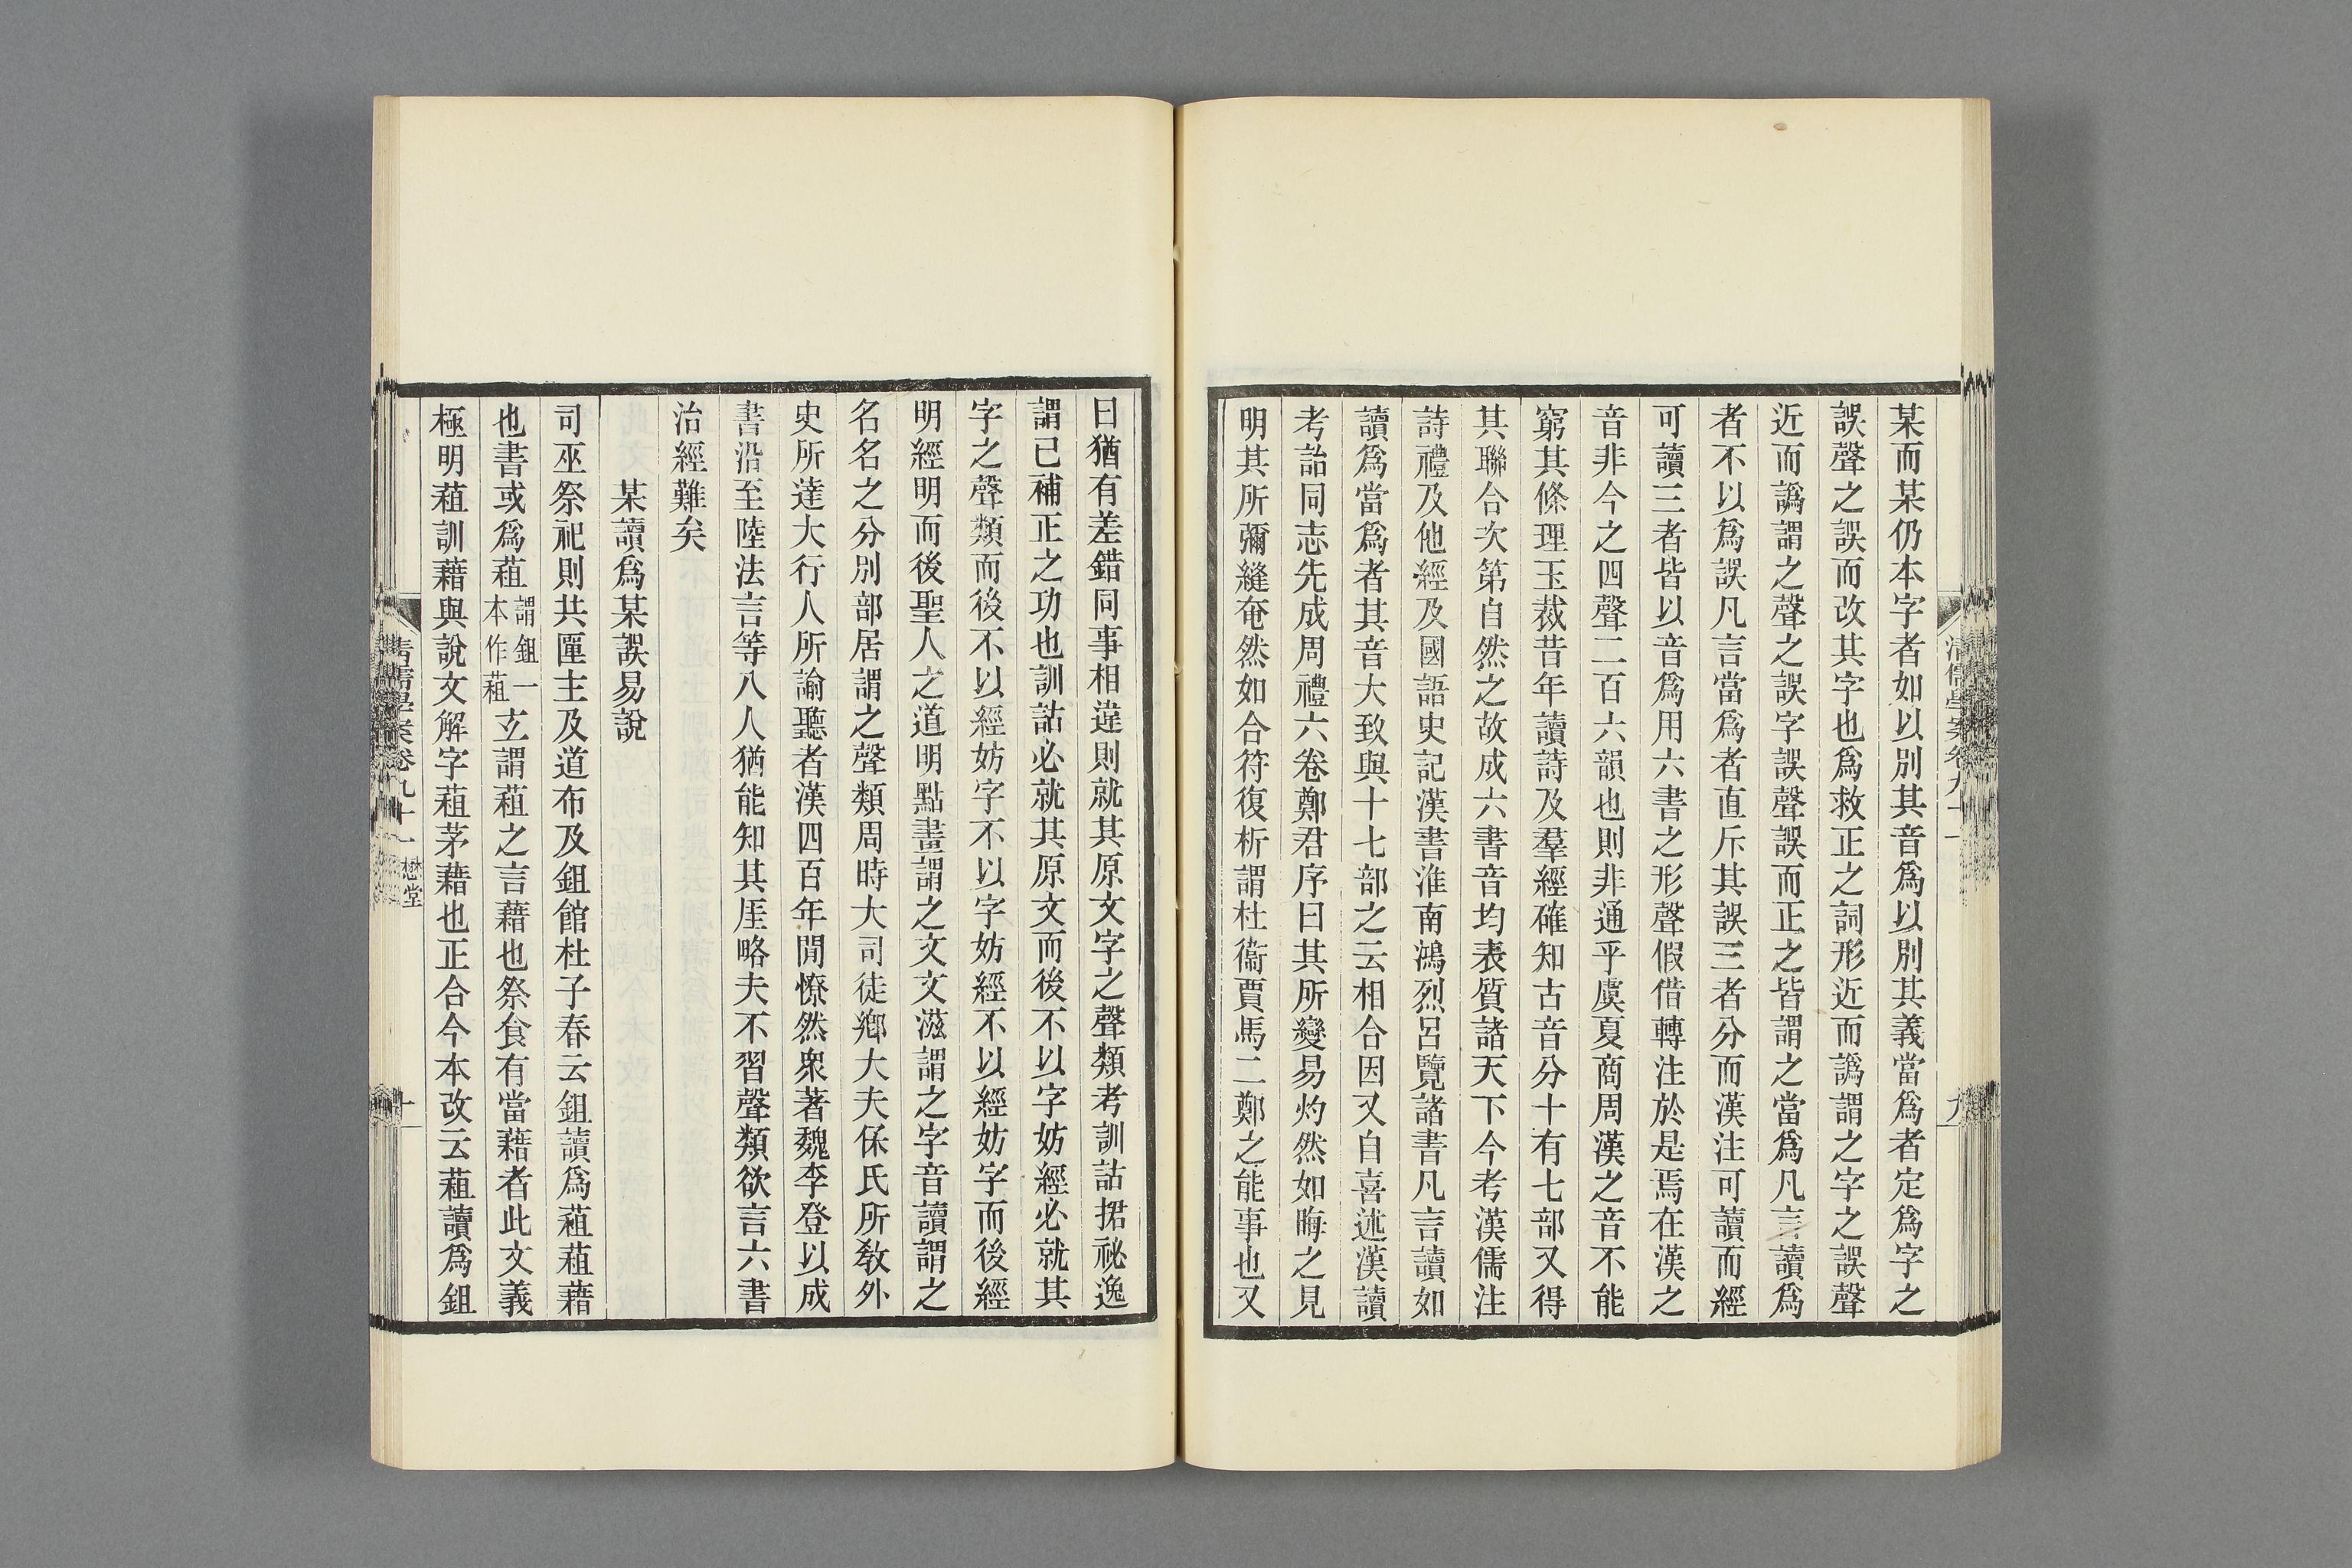 某而某仍本字者如以別其音爲以別其義當爲者定爲字之
誤聲之誤而改其字也爲救正之詞形近而譌謂之字之誤聲
近而譌謂之聲之誤字誤聲誤而正之皆謂之當爲凡言讀爲
者不以爲誤凡言當爲者直斥其誤三者分而漢注可讀而經
可讀三者皆以音爲用六書之形聲假借轉注於是焉在漢之
音非今之四聲二百六韻也則非通乎虞夏商周漢之音不能
窮其條理玉裁昔年讀詩及羣經確知古音分十有七部又得
其聯合次第自然之故成六書音均表質諸天下今考漢儒注
詩禮及他經及國語史記漢書淮南鴻烈呂覽諸書凡言讀如
讀爲當爲者其音大致與十七部之云相合因又自喜述漢讀
考詒同志先成周禮六卷鄭君序曰其所變易灼然如晦之見
明其所彌縫奄然如合符復析謂杜衞賈馬二鄭之能事也又
清儒學案卷九十一
九
曰猶有差錯同事相違則就其原文字之聲類考訓詁捃祕逸
謂己補正之功也訓詁必就其原文而後不以字妨經必就其
字之聲類而後不以經妨字不以字妨經不以經妨字而後經
明經明而後聖人之道明點畫謂之文文滋謂之字音讀謂之
名名之分別部居謂之聲類周時大司徒鄉大夫保氏所敎外
史所達大行人所諭聽者漢四百年閒憭然衆著魏李登以成
書沿至陸法言等八人猶能知其厓略夫不習聲類欲言六書
治經難矣
某讀爲某誤易說
司巫祭祀則共匰主及道布及鉏館杜子春云鉏讀爲蒩蒩藉
也書或爲蒩謂鉏一本作蒩玄謂蒩之言藉也祭食有當藉者此文義
極明蒩訓藉與說文解字蒩茅藉也正合今本改云蒩讀爲鉏
清儒學案卷九十一 懋堂
十